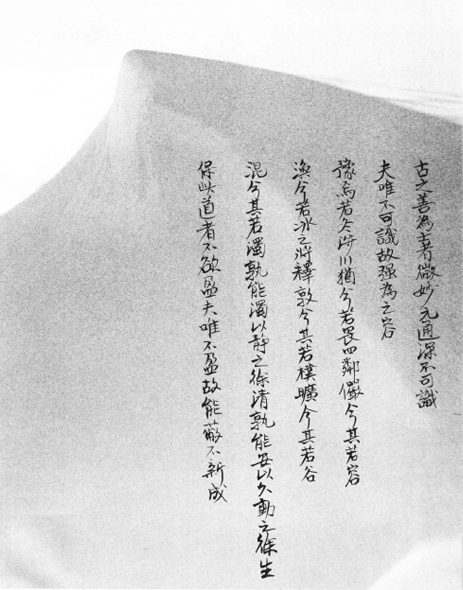 古之善為士者微妙元通深不可識
夫唯不可識故強為之容
豫焉若冬涉川猶兮若畏四鄰儼兮其若容
渙兮若冰之將釋敦兮其若樸曠兮其若谷
混兮其若濁孰能濁以靜之徐清孰能安以久動之徐生
保此道者不欲盈夫唯不盈故能蔽不新成